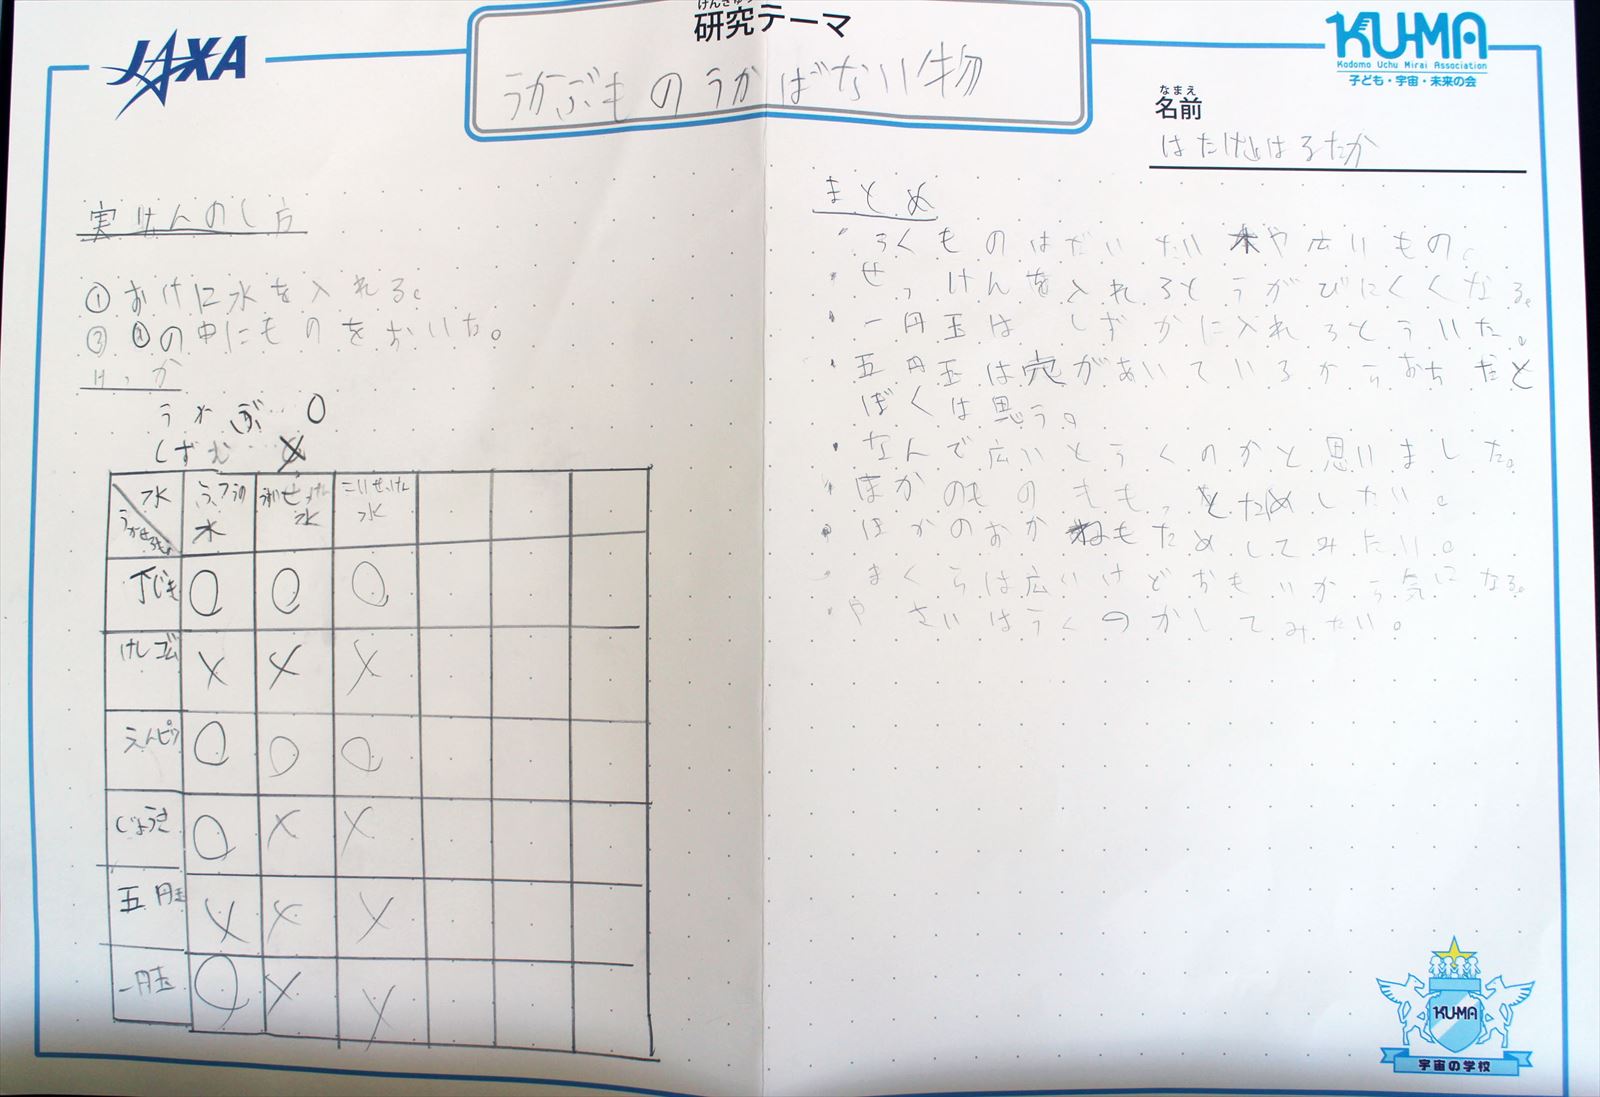 JAXA
けんきゅう
研究テーマ
うかぶもの うかばない物
KU-MA
Kodomo Uchu Mirai Association
子ども・宇宙・未来の会
なまえ
名前
はるたか
実けんのし方
①おけに水を入れる。
の中にものをおいた。
けっか
うかぶ…○
しずむ ×
水 ふつうの水 うすいせっけん水 こいせっけん水
○ ○ ○
けしゴム × × ×
えんピツ ○ ○ ○
じょうぎ ○ × ×
五円玉 × × ×
一円玉 ○ × ×
まとめ
・うくものはだいたい木や広いもの。
・せっけんを入れるとうかびにくくなる。
・一円玉は しずかに入れるとういた。
五円玉は穴があいているからおちたと
ぼくは思う。
・なんで広いとうくのかと思いました。
・ほかのものももっとためしたい。
・ほかのおかねもためしてみたい。
・まくらは広いけどおもいから気になる。
・やさいはうくのかしてみたい。
KU-MA
宇宙の学校